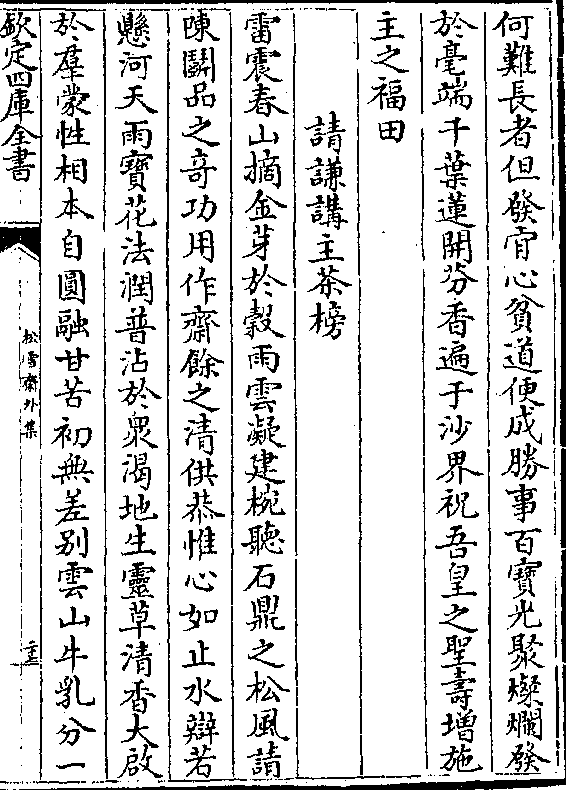 何難長者但發肯心貧道便成勝事百寶光聚燦爛發
於毫端千葉蓮開芬香遍于沙界祝吾皇之聖壽增施
主之福田
請謙講主茶榜
雷震春山摘金芽於穀雨雲凝建椀聽石鼎之松風請
陳鬬品之竒功用作齋餘之清供恭惟心如止水辯若
懸河天雨寶花法潤普沾於衆渴地生靈草清香大啟
於羣蒙性相本自圓融甘苦初無差别雲山牛乳分一
欽定四庫全書
松雪齋外集
二十三